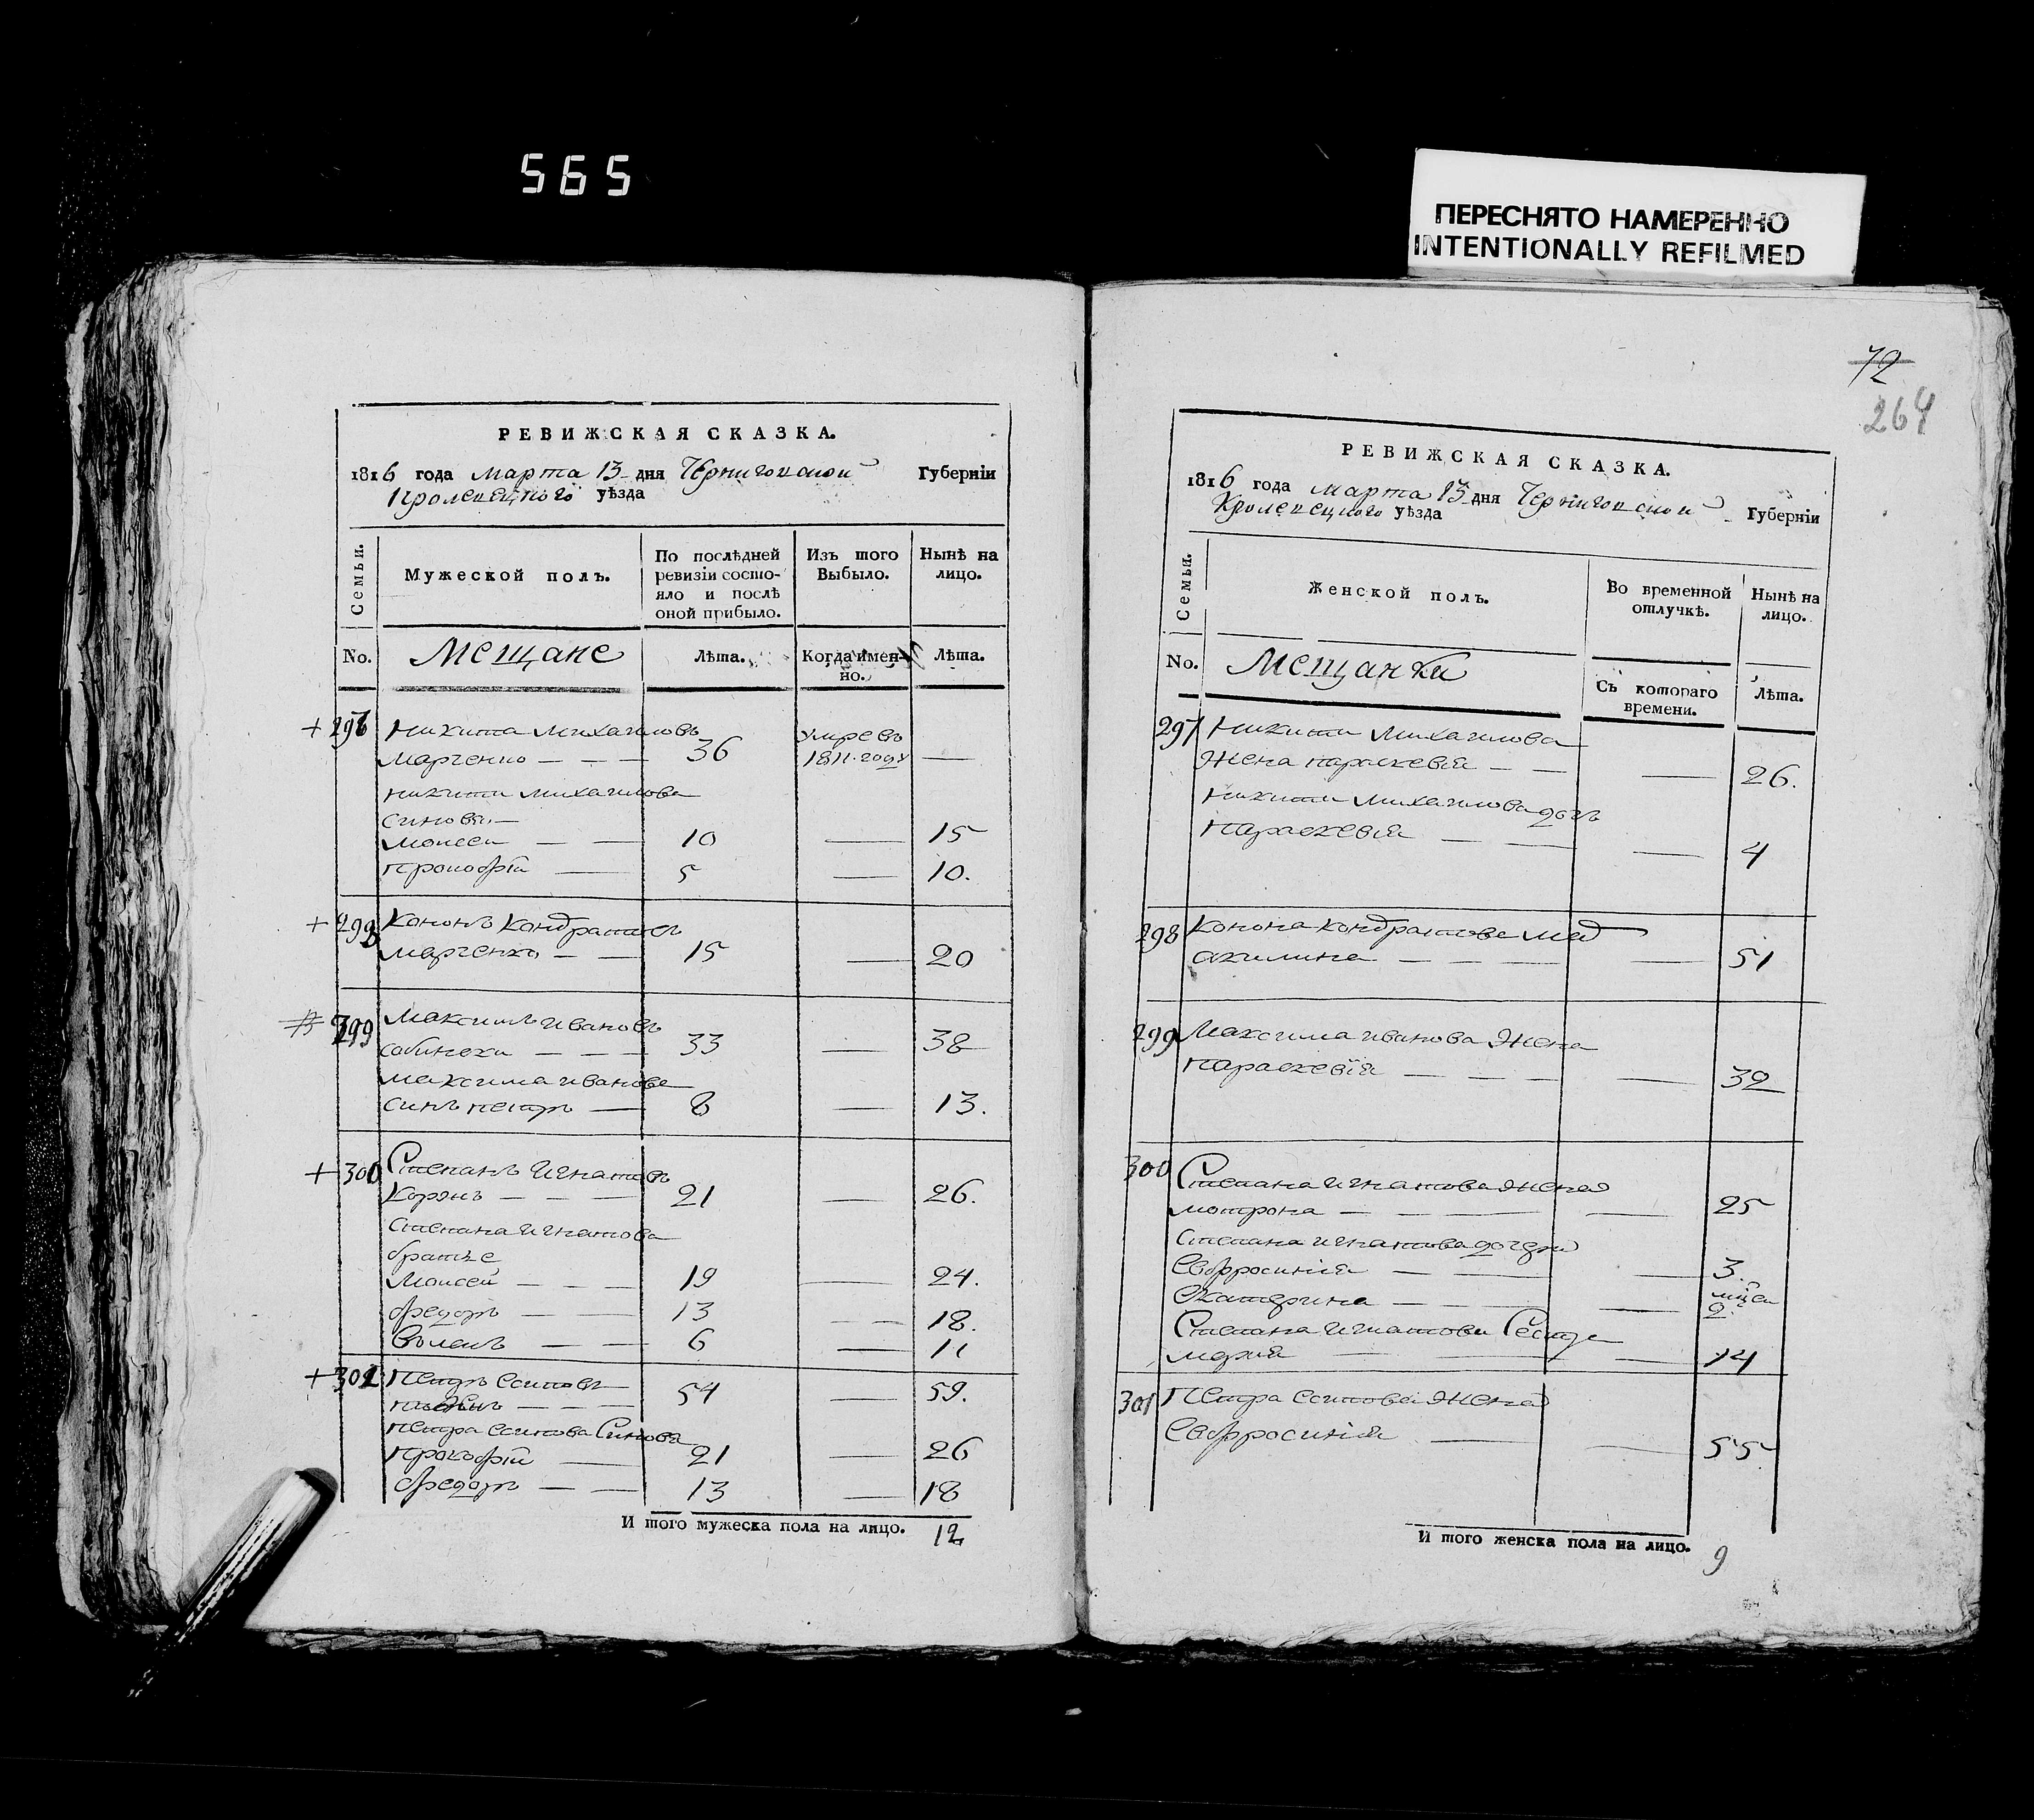 565
ПЕРЕСНЯТО НАМЕРЕННО
INTENTIONALLY REFILMED
РЕВИЖСКАЯ СКАЗКА.
1816 года марта 13 дня Черниговской Губерніи
Кролевецкого уѣзда
Семьи.
Мужеской полъ.
По послѣдней ревизіи состояло и послѣ оной прибыло.
Изъ того Выбыло.
Нынѣ на лицо.
No.
Мещане
Лѣта.
Когда именно.
Лѣта.
+ 297 Никита Михаиловъ умре въ
Марченко — — — 36 1811. году —
Никити Михаилова
синови—
Моисей — — 10 — 15
Прокофій — 5 — 10.
+ 298 Кононъ Кондратовъ
Марченко — — 15 — 20
299 Максимъ Ивановъ
— — — 33 — 38
Максима Иванова
синъ Петръ — 8 — 13.
+ 300 Степанъ Игнатовъ
— — — 21 — 26.
Степана Игнатова
братье
Моисей — — — 19 — 24.
Федоръ — — 13 — — 18.
— — 6 — 11
+ 301 Петръ Есиповъ
— — — 54 — 59.
Петра Есипова Синовя
Прокофій — 21 — 26
Федоръ — — 13 — 18
И того мужеска пола на лицо. 12
72
264
РЕВИЖСКАЯ СКАЗКА.
1816 года марта 13 дня Черниговской Губерніи
Кролевецкого уѣзда
Семьи.
Женской полъ.
Во временной отлучкѣ.
Нынѣ на лицо.
No.
Мещанки
Съ котораго времени.
Лѣта.
297 Никити Михаилова
Жена Параскевія — — — 26.
Никити Михаилова дочь
Параскевія — — — 4
298 Конона Кондратова
Акилина — — — — 51
299 Максима Иванова Жена
Параскевія — — — — 32
300 Степана Игнатова Жена
Мотрона — — — — 25
Степана Игнатова дочери
Евфросинія — — — 3.
Екатерина — — — 2
Степана Игнатова Сестра
Марія — — — 14
301 Петра Есипова Жена
Евфросинія — — 55
И того женска пола на лицо. 9